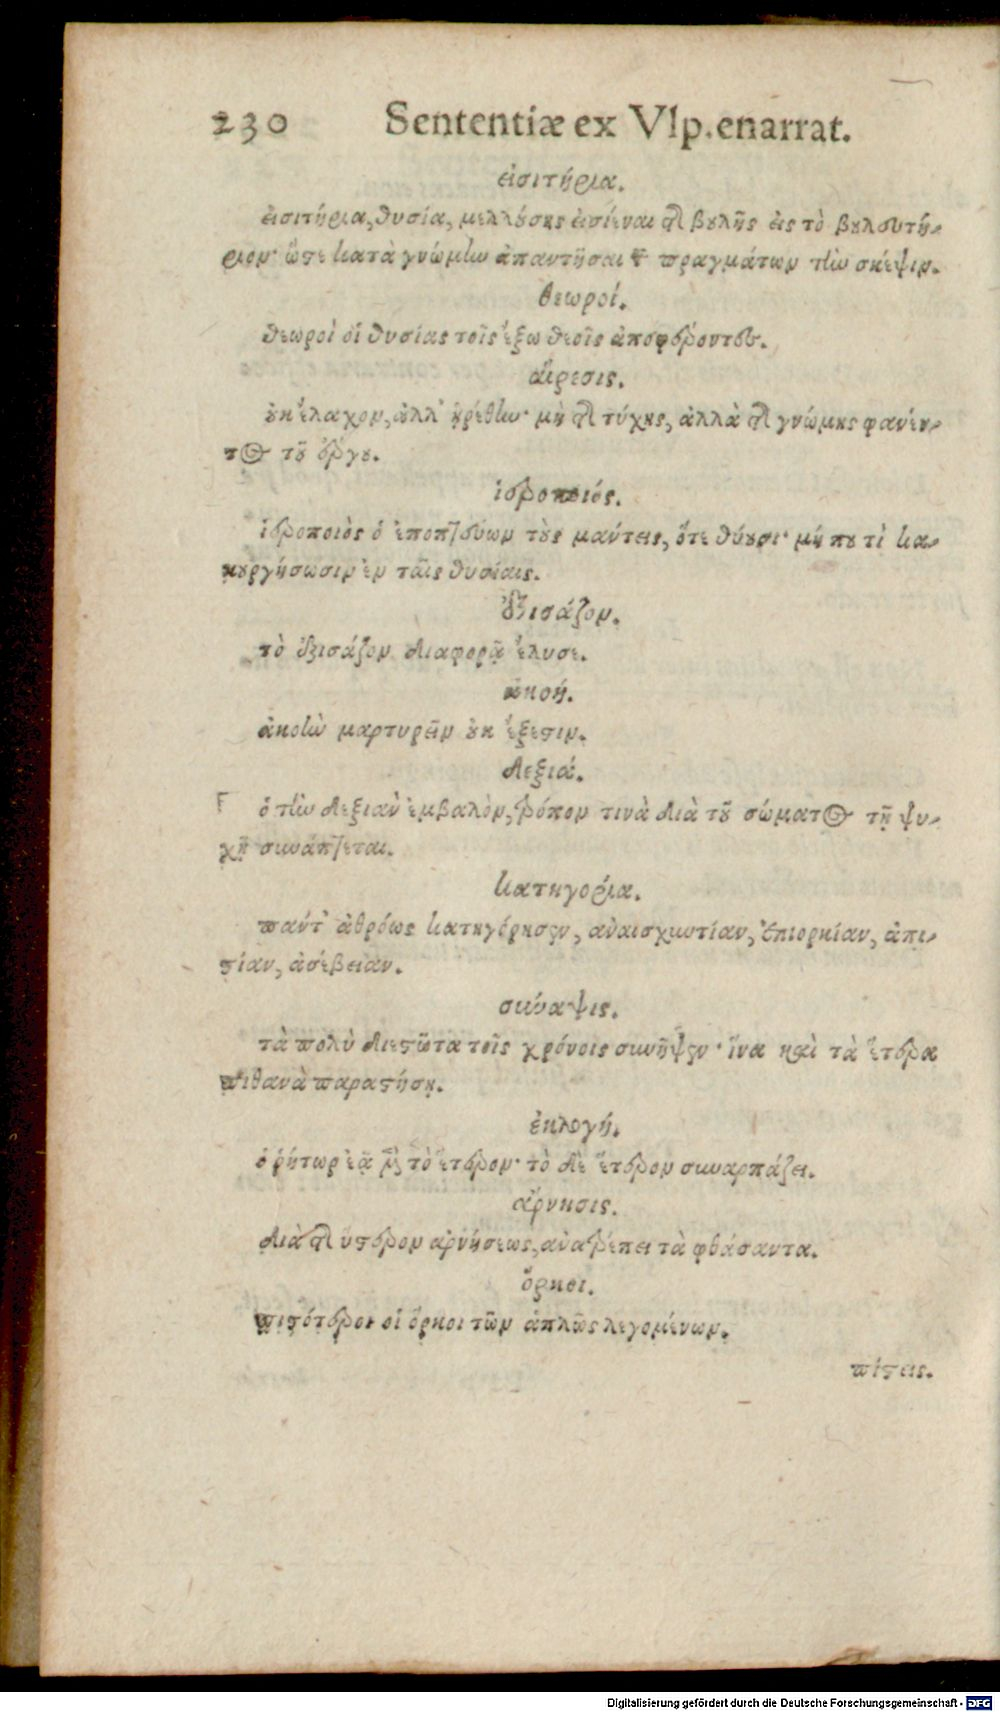 230 Sententiæ ex Vlp. enarrat.
εἰσιτήρια.
εἰσιτήρια, θυσία, μελλούσης εἰσιέναι τῆς βουλῆς εἰς τὸ βουλευτή-
ριον· ὥστε κατὰ γνώμην ἀπαντῆσαι τῶν πραγμάτων τὴν σκέψιν.
θεωροί.
θεωροὶ οἱ θυσίας τοῖς ἔξω θεοῖς ἀποφέροντες.
αἵρεσις.
οὐκ ἔλαχον, ἀλλ' ᾑρέθην· μὴ τῆς τύχης, ἀλλὰ τῆς γνώμης φανέν-
τος τοῦ ἔργου.
ἱεροποιός.
ἱεροποιὸς ὁ ἐποπτεύων τοὺς μάντεις, ὅτε θύουσι· μή που τὶ κα-
κουργήσωσιν ἐν ταῖς θυσίαις.
ἐξισάζον.
τὸ ἐξισάζον διαφορᾷ ἔλυσε.
ἀκοή.
ἀκοὴν μαρτυρεῖν οὐκ ἔξεστιν.
δεξιά.
ὁ τὴν δεξιὰν ἐμβαλὼν, τρόπον τινὰ διὰ τοῦ σώματος τῇ ψυ-
χῇ συνάπτεται.
κατηγορία.
πάντ' ἀθρόως κατηγόρησεν, ἀναισχυντίαν, ἐπιορκίαν, ἀπι-
στίαν, ἀσέβειαν.
σύναψις.
τὰ πολὺ διεστῶτα τοῖς χρόνοις συνῆψεν· ἵνα καὶ τὰ ἕτερα
πιθανὰ παραστήσῃ.
ἐκλογή.
ὁ ῥήτωρ ἐᾷ μὲν τὸ ἕτερον· τὸ δὲ ἕτερον συναρπάζει.
ἄρνησις.
διὰ τῆς ὕστερον ἀρνήσεως, ἀνατρέπει τὰ φθάσαντα.
ὅρκοι.
πιστότεροι οἱ ὅρκοι τῶν ἁπλῶς λεγομένων.
πίστεις.
Digitalisierung gefördert durch die Deutsche Forschungsgemeinschaft - DFG